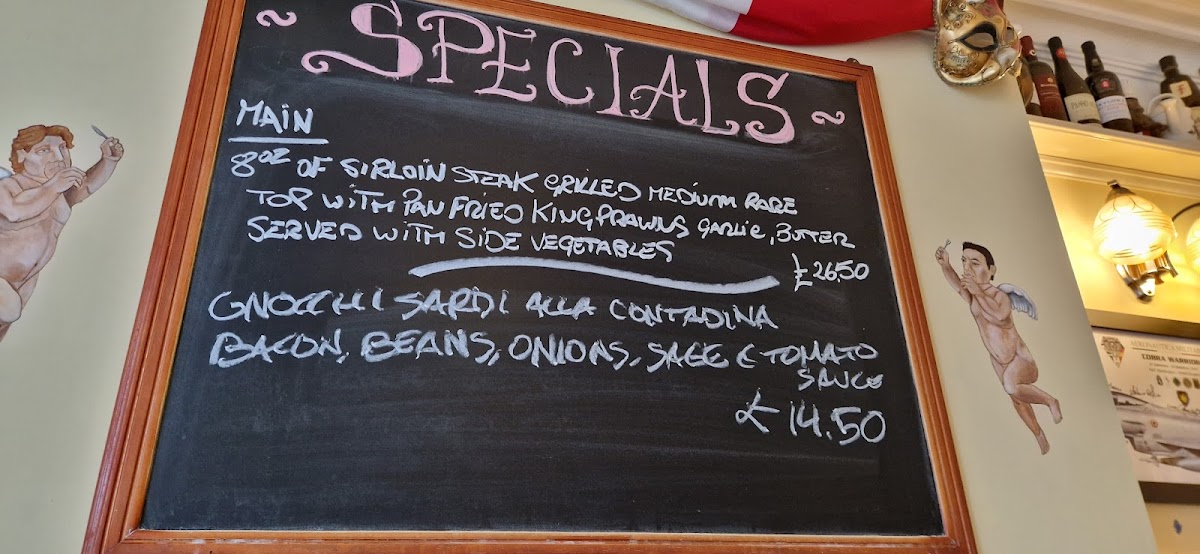 ~ SPECIALS ~
MAIN
8oz OF SIRLOIN STEAK GRILLED MEDIUM RARE
TOP WITH PAN FRIED KING PRAWNS GARLIC, BUTTER
SERVED WITH SIDE VEGETABLES
£26,50
GNOCCHI SARDI ALLA CONTADINA
BACON, BEANS, ONIONS, SAGE E TOMATO
SAUCE
£14.50
COBRA WARRIOR